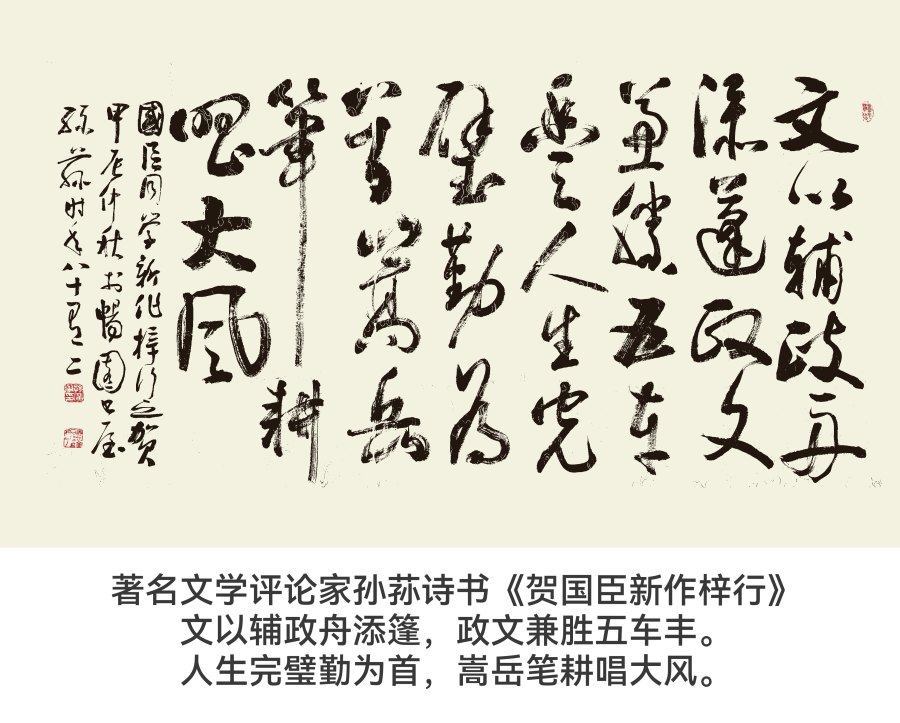 文以辅政舟
添蓬政文
兼胜五车
丰人生完
璧勤为
首嵩岳
筆耕
唱大风
國臣同学新作梓行之贺
甲辰仲秋于暢園
孫荪时年八十有二
著名文学评论家孙荪诗书《贺国臣新作梓行》
文以辅政舟添篷，政文兼胜五车丰。
人生完璧勤为首，嵩岳笔耕唱大风。